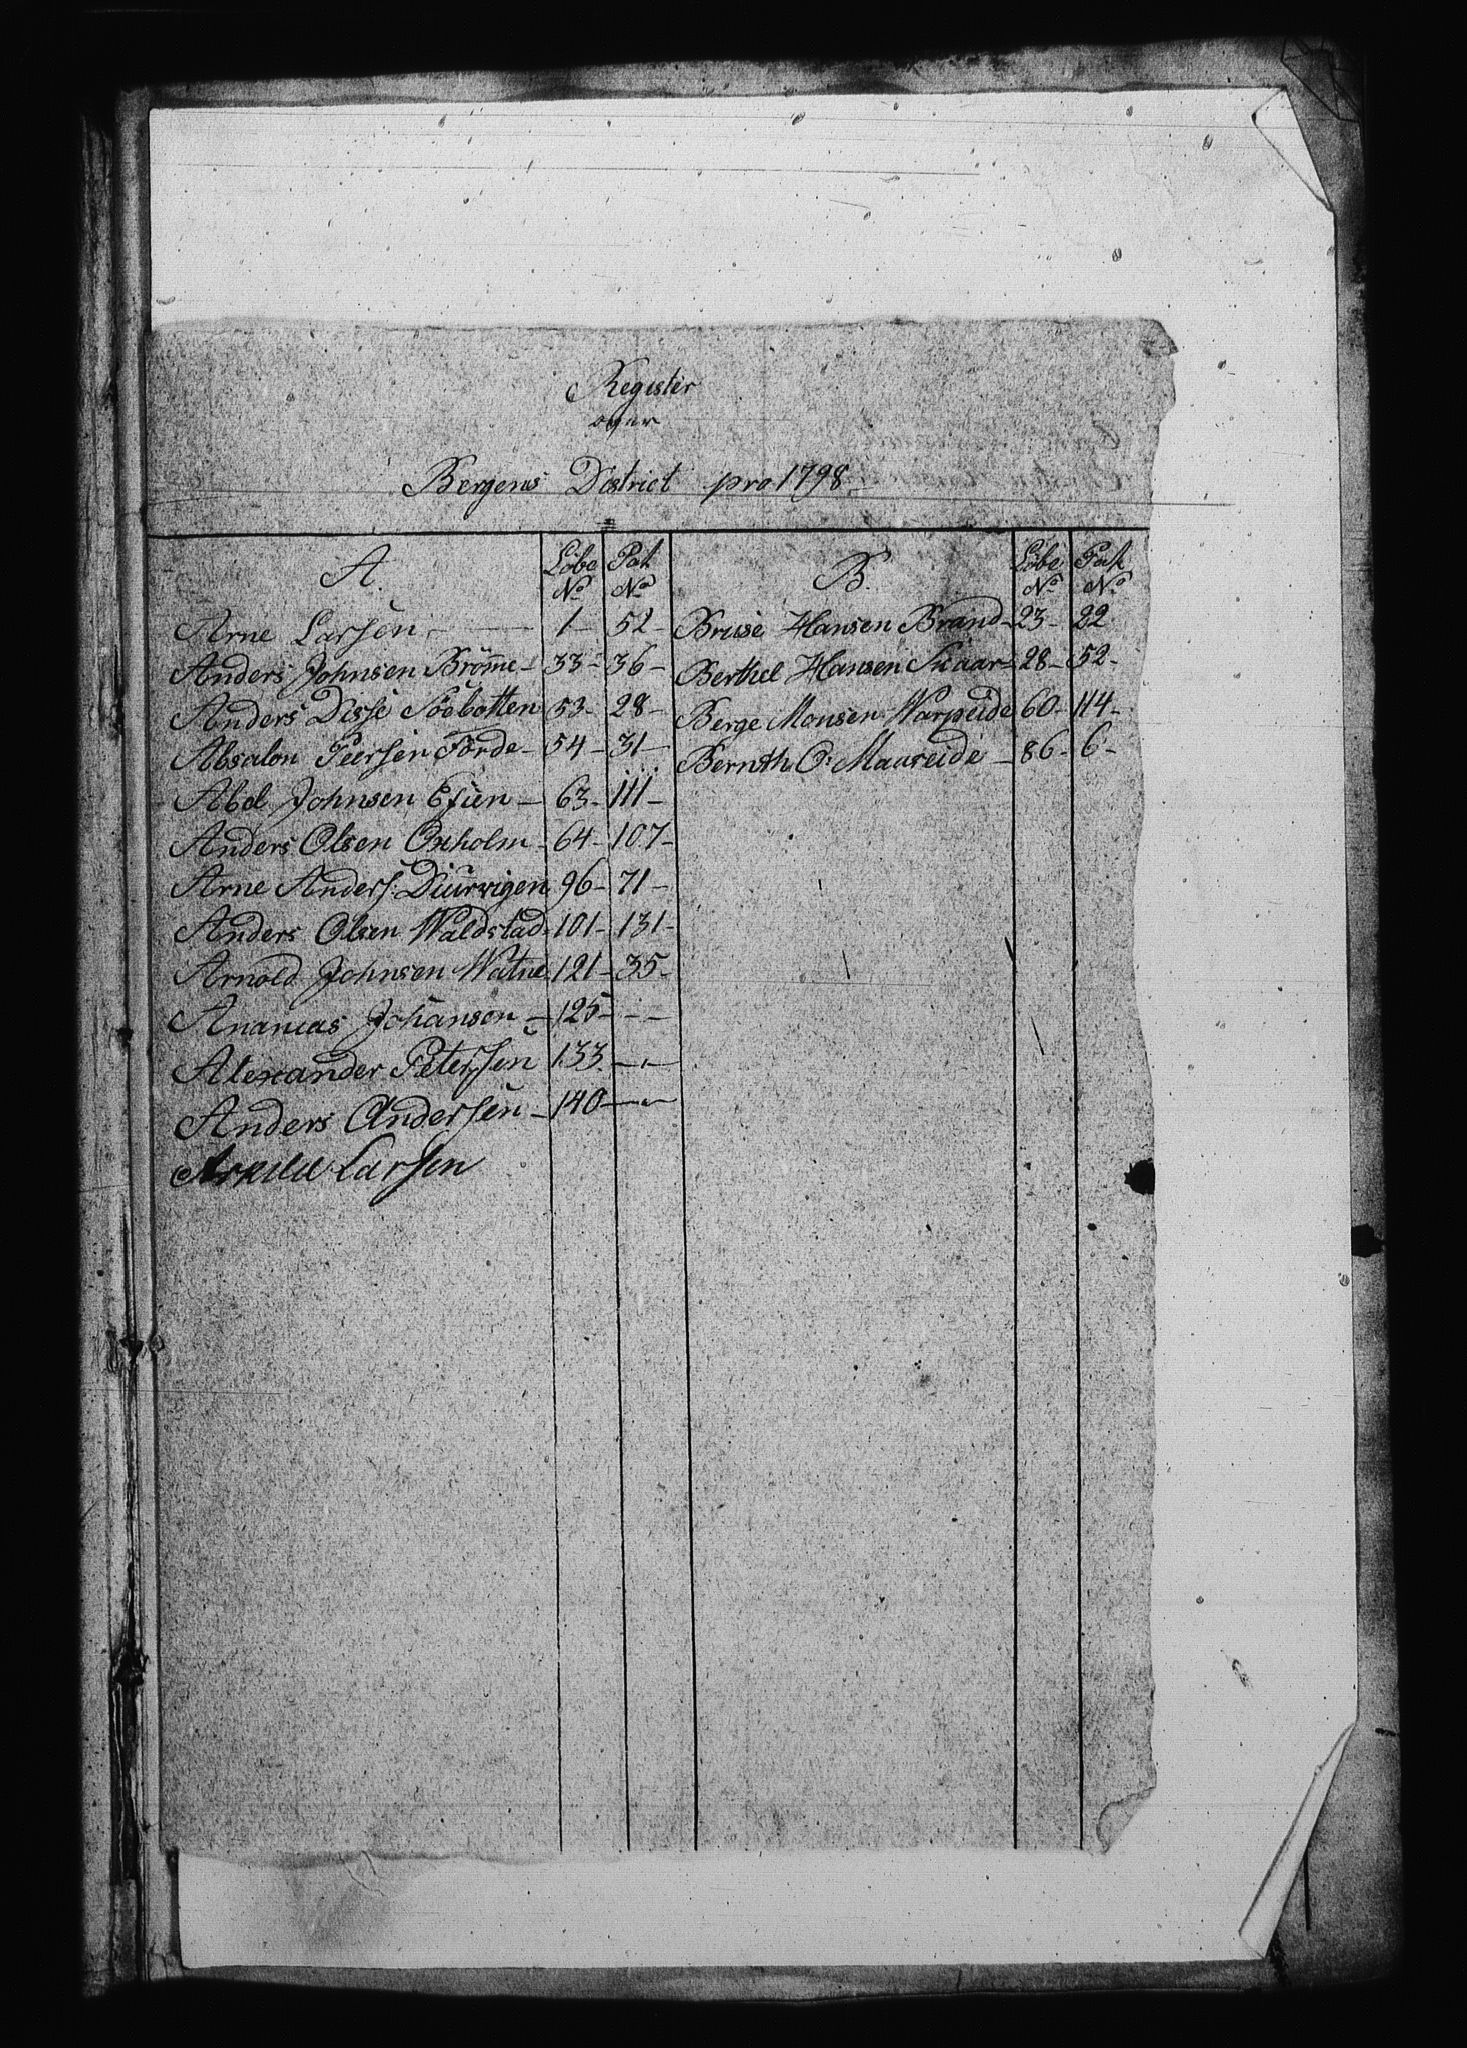 Register
over
Bergens District pro 1798
A. Löbe No Pat No B. Löbe No Pat No
Arne Larsen 1 52 Bruse Hansen Brand 23 22
Anders Johnsen Brömme 33 36 Berthel Hansen Skaar 28 52
Anders Disse Söebotten 53 28 Berge Monsen Warpeide 60 114
Absalon Peersen Förde 54 31 Bernth O: Maureide 86 6
Abel Johnsen 63 111
Anders Olsen Oxholm 64 107
Arne Anders: Diurvigen 96 71
Anders Olsen Waldstad 101 131
Arnold Johnsen Watne 121 35
Ananias Johansen 125
Alexander Petersen 133
Anders Andersen 140
Larsen